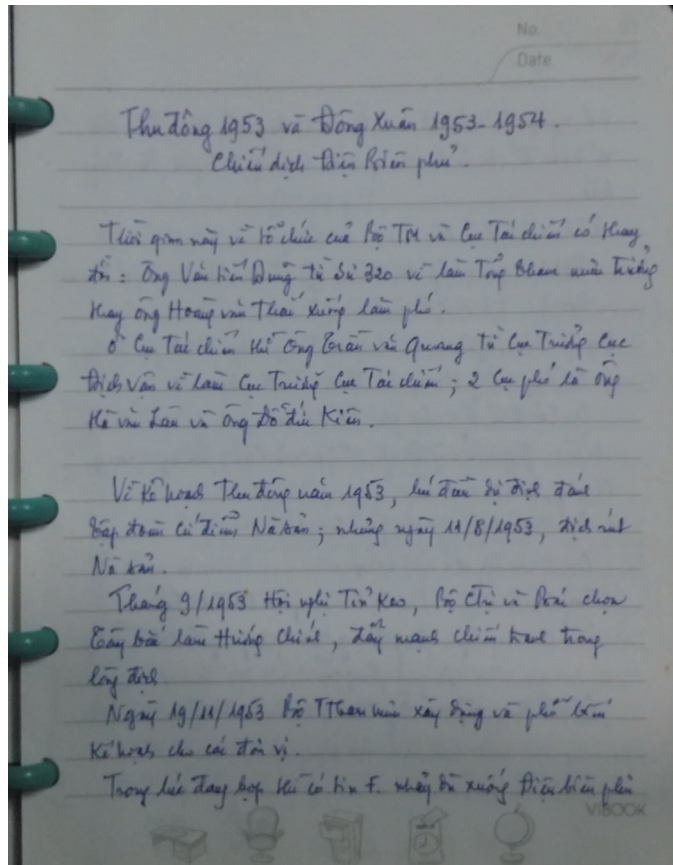 No.
Date
Thu đông 1953 và Đông Xuân 1953-1954.
Chiến dịch Điện Biên phủ.
Thời gian này về tổ chức của Bộ TM và Cục Tác chiến có thay
đổi: Ông Văn tiến Dũng từ Sư 320 về làm Tổng tham mưu trưởng
thay ông Hoàng văn Thái xuống làm phó.
Ở Cục Tác chiến thì Ông Trần văn Quang từ Cục Trưởng Cục
Địch Vận về làm Cục Trưởng Cục Tác chiến; 2 Cục phó là ông
Hà văn Lâu và Ông Đỗ đức Kiên.
Về Kế hoạch Thu đông năm 1953, lúc đầu dự định đánh
tập đoàn cứ điểm Nà sản; nhưng ngày 11/8/1953, địch rút
Nà sản.
Tháng 9/1953 Hội nghị Tỉn Keo, Bộ CTrị và Bác chọn
Tây bắc làm Hướng Chính, đẩy mạnh chiến tranh trong
lòng địch
Ngày 19/11/1953 Bộ TTham mưu xây dựng và phổ biến
Kế hoạch cho các đơn vị.
Trong lúc đang họp thì có tin F. nhảy dù xuống Điện biên phủ
VIBOOK